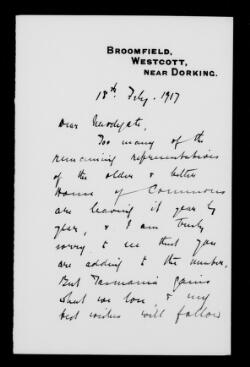 BROOMFIELD,
WESTCOTT,
NEAR DORKING.
18th Feby. 1917
Dear Newdegate,
Too many of the
remaining representatives
of the older & better
House of Commons
are leaving it year by
year, & I am truly
sorry to see that you
are adding to the number.
But Tasmania gains
what we lose, & my
best wishes will follow